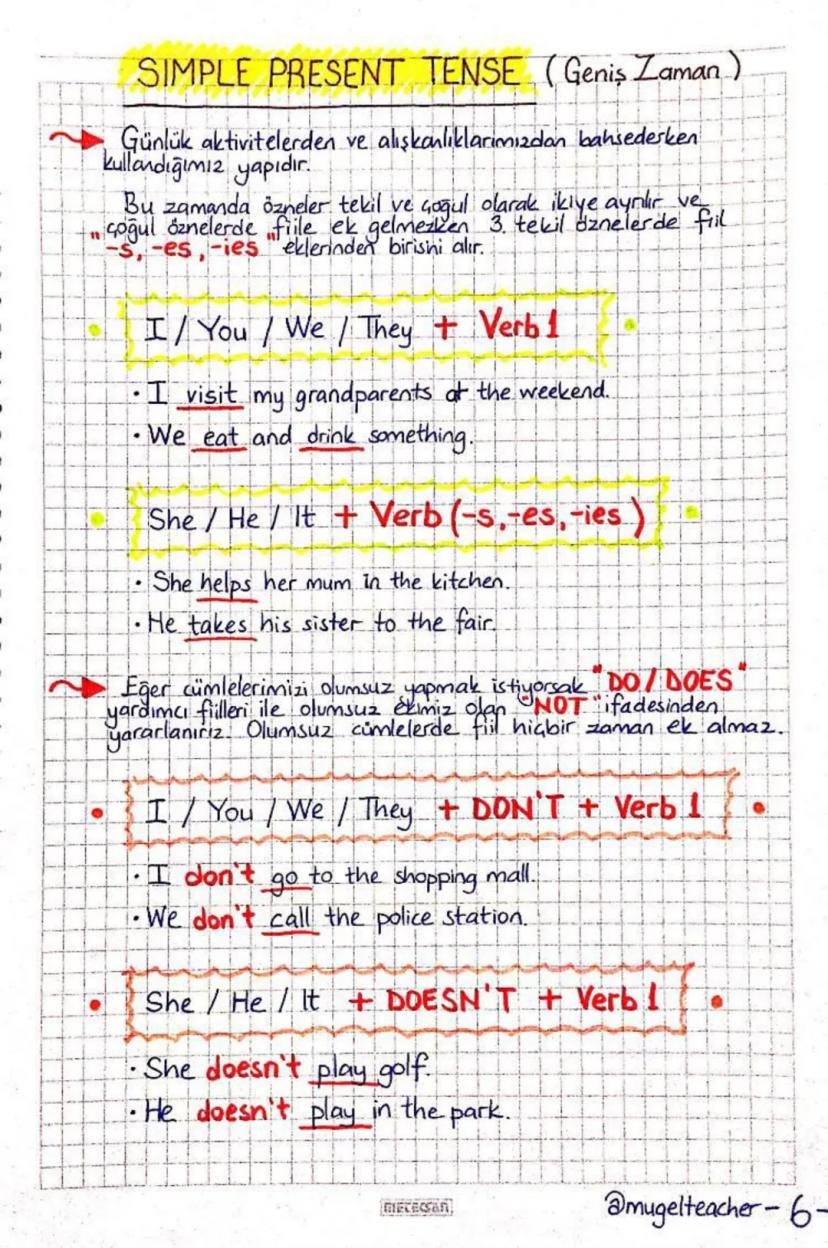 SIMPLE PRESENT TENSE (Geniş Zaman)
Günlük aktivitelerden ve alışkanlıklarımızdan bahsederken
kullandığımız yapıdır.
Bu zamanda özneler tekil ve çoğul olarak ikiye ayrılır ve
çoğul öznelerde fiile ek gelmezken 3. tekil öznelerde fiil
"-s, -es, -ies" eklerinden birisni alır.
I / You / We / They + Verb 1
• I visit my grandparents at the weekend.
• We eat and drink something.
She / He / It + Verb (-s, -es, -ies)
• She helps her mum in the kitchen.
• He takes his sister to the fair.
Eğer cümlelerimizi olumsuz yapmak istiyorsak "DO / DOES"
yardımcı fiilleri ile olumsuz ekimiz olan "NOT" ifadesinden
yararlanırız. Olumsuz cümlelerde fiil hiçbir zaman ek almaz.
I / You / We / They + DON'T + Verb 1
• I don't go to the shopping mall.
• We don't call the police station.
She / He / It + DOESN'T + Verb 1
• She doesn't play golf.
• He doesn't play in the park.
METEKSAN
@mugelteacher - 6 -